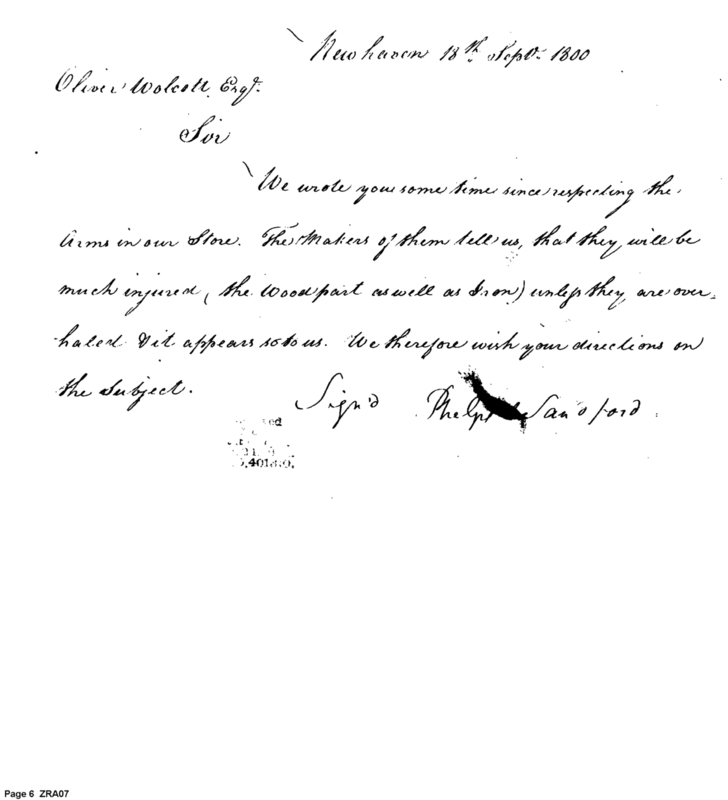 Newhaven 18th Sept. 1800
Oliver Wolcott, Esqr.
Sir
We wrote you some time since respecting the
Arms in our Store. The Makers of them tell us, that they will be
much injured, (the wood part as well as Iron) unless they are over-
haled & it appears so to us. We therefore wish your directions on
the Subject.
Sign'd Phelps Sandford
Page 6 ZRA07